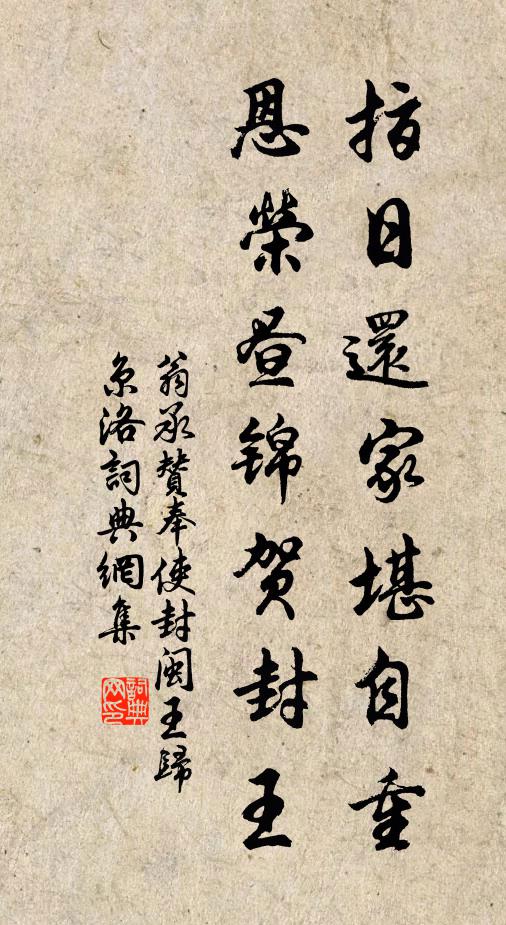 指日還家堪自重
恩榮昼錦贺封王
翁承贊奉使封閩王歸
京洛詞典網集
詞典
网印